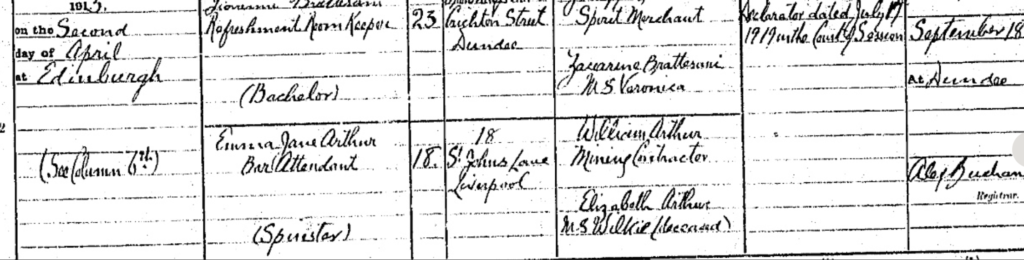 1913.
on the Second
day of April
at Edinburgh
(See Column 6th.)
Giovanni Brattesani
Refreshment Room Keeper
(Bachelor)
Emma Jane Arthur
Bar Attendant
(Spinster)
23
18.
Crighton Street
Dundee
18
St Johns Lane
Liverpool
Spirit Merchant
Zaccarine Brattesani
M.S. Veronica
William Arthur
Mining Contractor
Elizabeth Arthur
M.S. Wilkie (deceased)
Declarator dated July 17
1919 in the Court of Session
September 18
At Dundee
Alex Buchan
Registrar.
2